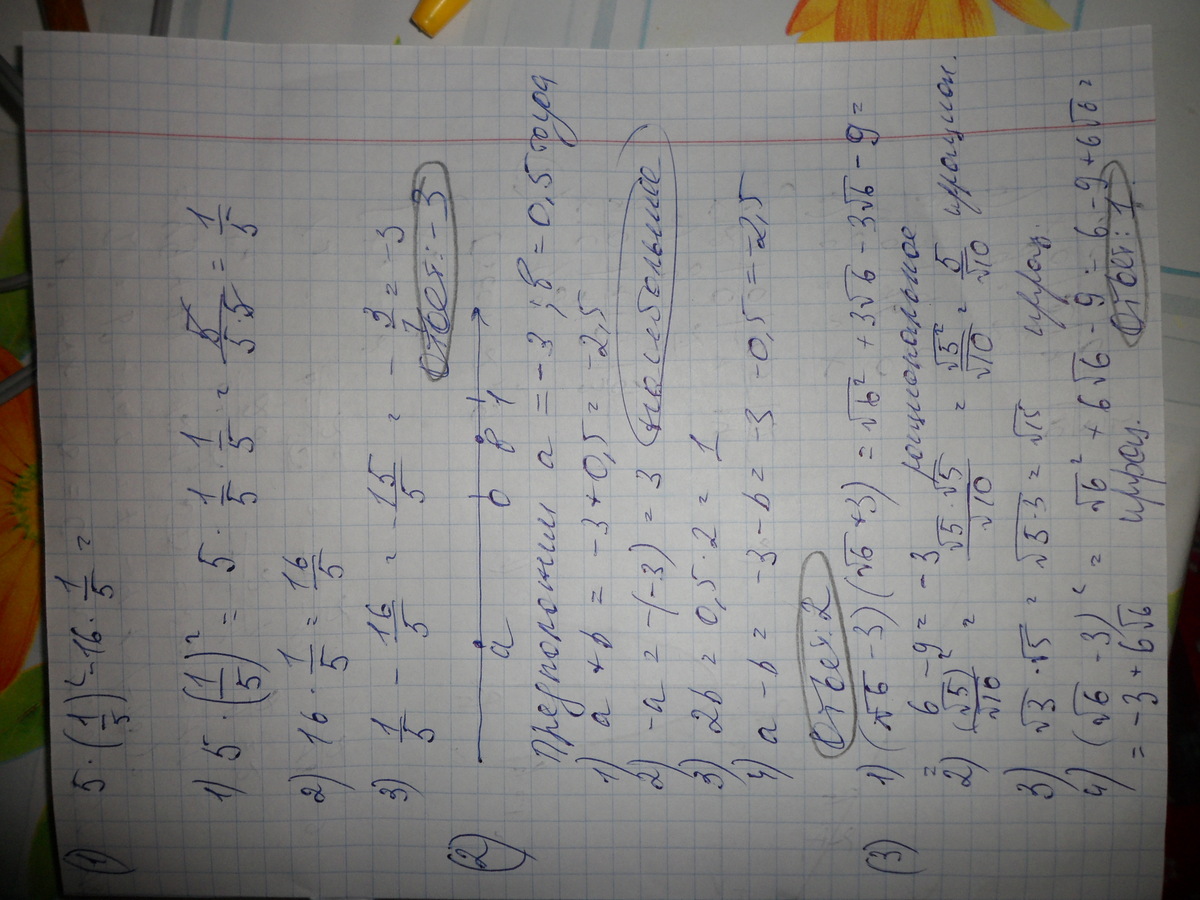 (1) 5·(1/5)² - 16·1/5 =
1) 5·(1/5)² = 5·1/5·1/5 = 5/(5·5) = 1/5
2) 16·1/5 = 16/5
3) 1/5 - 16/5 = -15/5 = -3/1 = -3
Ответ: -3
(2)
a 0 в 1
Предположим a = -3 ; в = 0,5 тогда
1) a + b = -3 + 0,5 = -2,5
2) -a = -(-3) = 3 наибольшие
3) 2b = 0,5·2 = 1
4) a - b = -3 - b = -3 - 0,5 = -2,5
Ответ: 2
(3) 1) (√6 - 3)(√6 + 3) = √6² + 3√6 - 3√6 - 9 =
= 6 - 9 = -3 рациональное
2) (√5)²/√10 = √5·√5/√10 = √5²/√10 = 5/√10 иррацион.
3) √3·√5 = √5·3 = √15 иррац.
4) (√6 - 3)² = √6² + 6√6 - 9 = 6 - 9 + 6√6 =
= -3 + 6√6 иррац.
Ответ: 1.